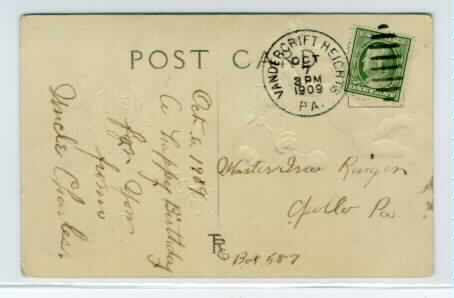 POST CARD
VANDERGRIFT HEIGHTS
OCT
7
3 PM
1909
PA.
Oct 6, 1909
A Happy Birthday
for you
from
Uncle Charles.
Master
Apollo Pa
Box 587